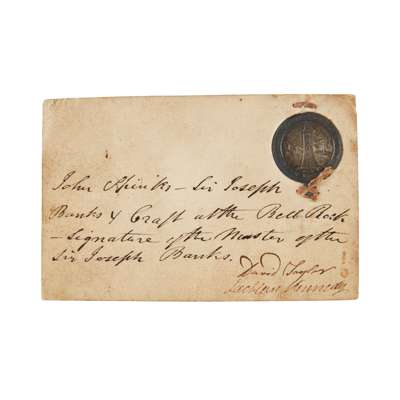 John Spinks – Sir Joseph
Banks & Craft at the Bell Rock
– Signature of the Master of the
Sir Joseph Banks.
David Taylor
Lachlan Kennedy